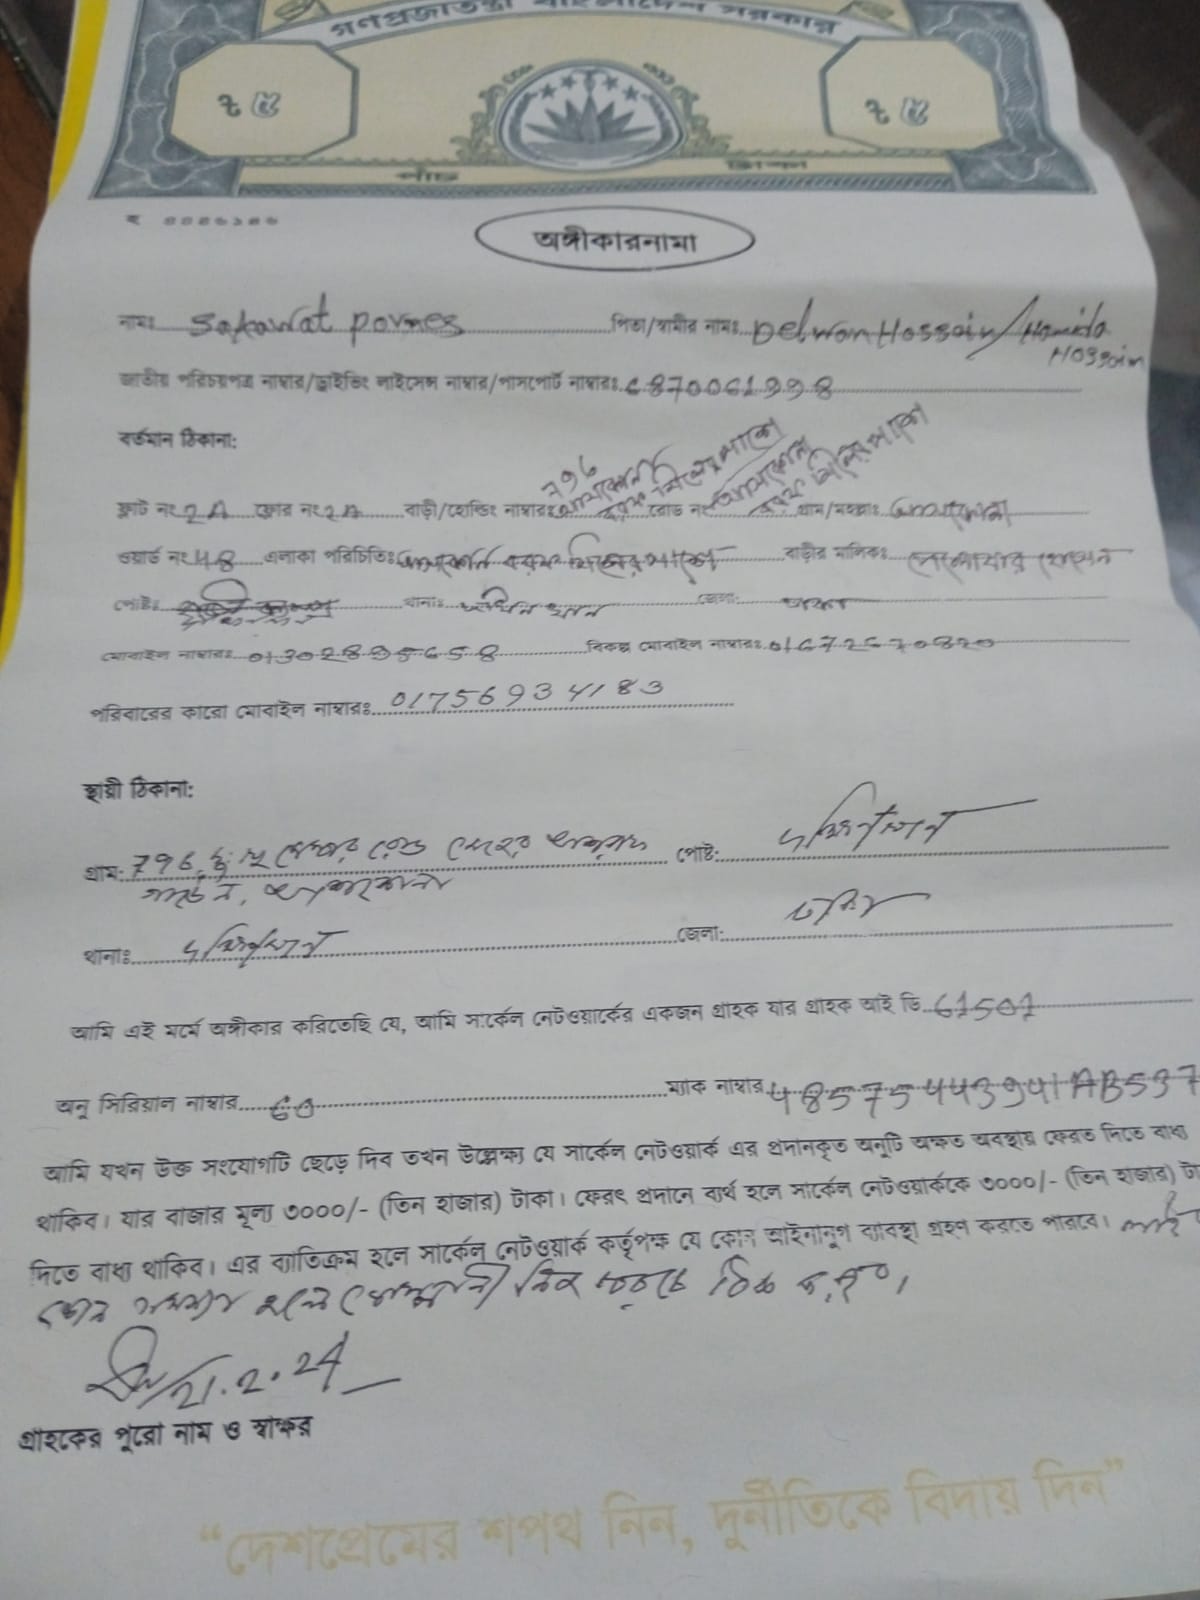 গণপ্রজাতন্ত্রী বাংলাদেশ সরকার
৳ ৫ ৳ ৫
পাঁচ টাকা
অঙ্গীকারনামা
নামঃ Sakawat পিতা/স্বামীর নামঃ Delwar Hossain/Hamida Hossain
জাতীয় পরিচয়পত্র নাম্বার/ড্রাইভিং লাইসেন্স নাম্বার/পাসপোর্ট নাম্বারঃ 6870061998
বর্তমান ঠিকানা:
796
ফ্লাট নং 2A ফ্লোর নং 2A বাড়ী/হোল্ডিং নাম্বারঃ রোড নং গ্রাম/মহল্লাঃ
ওয়ার্ড নং 48 এলাকা পরিচিতিঃ বরফ মিলের পাশে বাড়ীর মালিকঃ দেলোয়ার হোসেন
পোষ্টঃ থানাঃ দক্ষিন খান জেলা: ঢাকা
মোবাইল নাম্বারঃ 01302895658 বিকল্প মোবাইল নাম্বারঃ 01672670820
পরিবারের কারো মোবাইল নাম্বারঃ 01756934183
স্থায়ী ঠিকানা:
গ্রাম: 796, রোড পোষ্ট: দক্ষিনখান
থানাঃ দক্ষিনখান জেলা: ঢাকা
আমি এই মর্মে অঙ্গীকার করিতেছি যে, আমি সার্কেল নেটওয়ার্কের একজন গ্রাহক যার গ্রাহক আই ডি 61501
অনু সিরিয়াল নাম্বার 60 ম্যাক নাম্বার 485754443941AB537
আমি যখন উক্ত সংযোগটি ছেড়ে দিব তখন উল্লেক্ষ্য যে সার্কেল নেটওয়ার্ক এর প্রদানকৃত অনুটি অক্ষত অবস্থায় ফেরত দিতে বাধ্য
থাকিব। যার বাজার মূল্য ৩০০০/- (তিন হাজার) টাকা। ফেরৎ প্রদানে ব্যর্থ হলে সার্কেল নেটওয়ার্ককে ৩০০০/- (তিন হাজার) টা
দিতে বাধ্য থাকিব। এর ব্যাতিক্রম হলে সার্কেল নেটওয়ার্ক কর্তৃপক্ষ যে কোন আইনানুগ ব্যাবস্থা গ্রহণ করতে পারবে।
কোন সমস্যা হলে কোম্পানী নিজ খরচে ঠিক
21.2.24
গ্রাহকের পুরো নাম ও স্বাক্ষর
“দেশপ্রেমের শপথ নিন, দুর্নীতিকে বিদায় দিন”